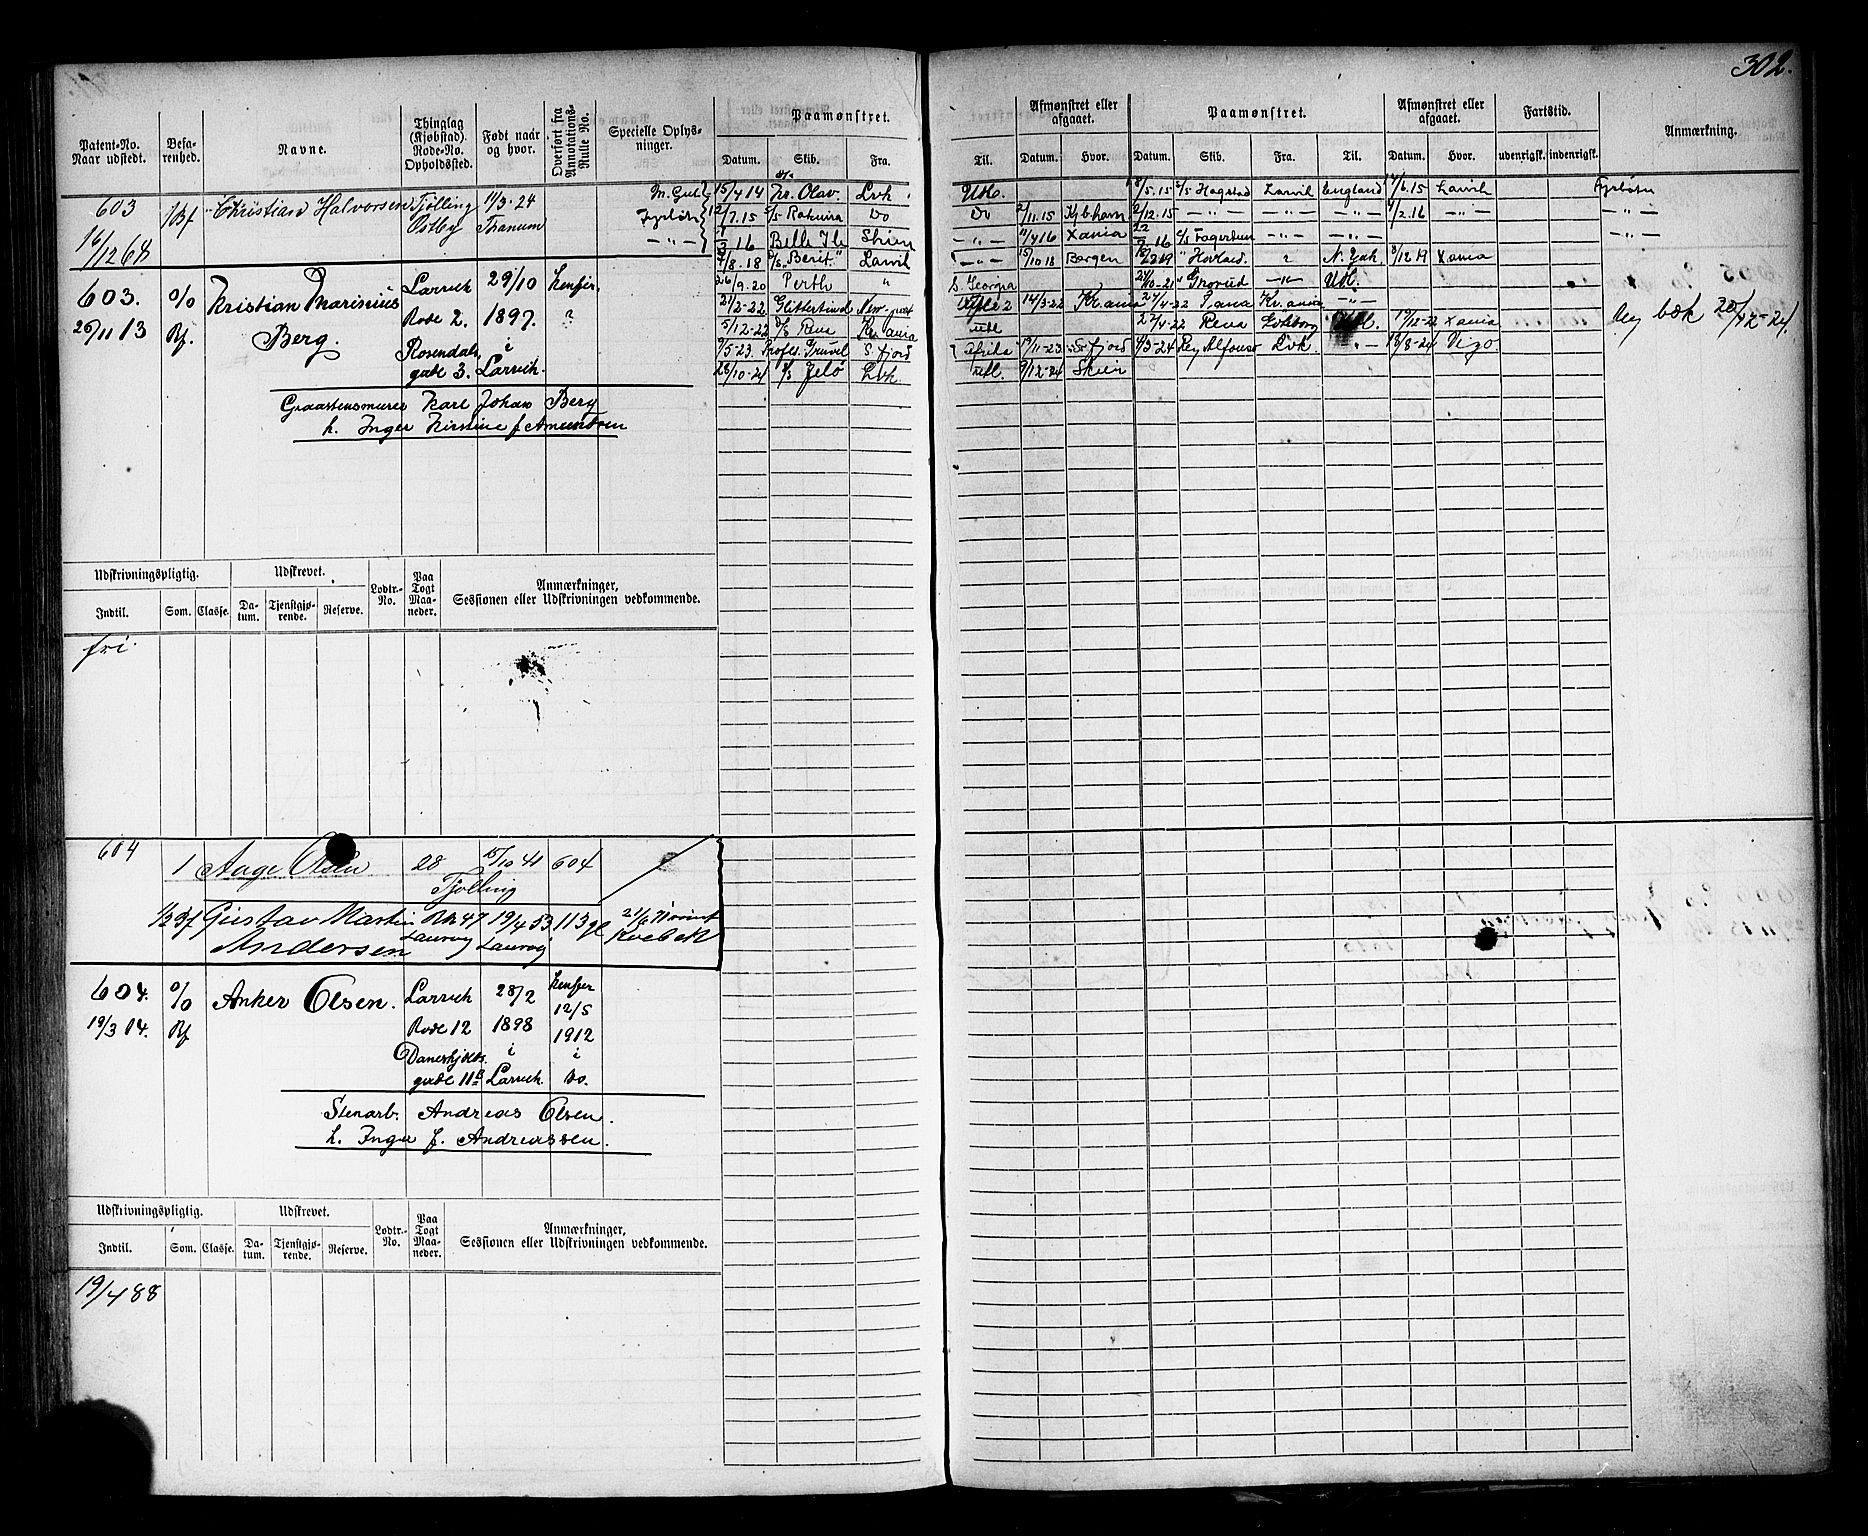 302.
Patent-No. Naar udstedt.
Befarenhed.
Navne.
Thinglag (Kjøbstad). Rode-No. Opholdssted.
Født naar og hvor.
Overført fra Annotations-Rulle No.
Specielle Oplysninger.
Paamønstret.
Datum. Skib. Fra.
Til.
Afmønstret eller afgaaet.
Datum. Hvor.
Paamønstret.
Datum. Skib. Fra. Til.
Afmønstret eller afgaaet.
Datum. Hvor.
Fartstid.
udenrigsk. indenrigsk.
Anmærkning.
603 Christian Halvorsen Tjølling 11/3-24
Østby Tranum
16/12 68
603. % Kristian Marinius Larvik 29/10
25/11 13 Bf. Berg. Rode 2. 1897. ?
Rosendals i
gade 3. Larvik.
Graastensmurer Karl Johan Berg
h. Inger Kirstine f. Amundsen
15/4 14 Kr. Olav Lvk Utl. 8/5.15 Hogstad Larvik England 6.15 Larvik Fyrbøter
7.15 Do Do 2/11.15 Kjbhavn 2/12.15 —"— —"— —"— 2.16 —"— —"—
16 Belle Ile Skien —"— 11/4 16 Xania Fagertun —"— —"— —"—
8.18 "Berit" Larvik —"— 15/10 18 Bergen N. York 8/12 19 Xania
26/9.20 Perth " S Georgia 10-21 Utl.
21/2-22 Glittertind 14/3-22 Kr.ania 4-22 Kr.ania —"—
5/12-22 Rena Kr.ania utl 4-22 Rena Göteborg Utl. 19/12-22 Xania
9/5-23. Profes. Gruvel S. fjord Afrika 19/11-23. S. fjord 3-24 Rey Alfonso Lvk. —"— 18/8-24 Vigo
28/10-24 Jelø Lvk. utl. 9/12-24 Skien
Ny bok 20/12-24
Udskrivningspligtig. Udskrevet. Lodtr.-No. Paa Togt Maaneder. Anmærkninger, Sessionen eller Udskrivningen vedkommende.
Indtil. Som. Classe. Datum. Tjenstgjørende. Reserve.
fri.
604 1 Aage Olsen 28 15/10 41 604
Tjølling
Gustav Martin Rk 47 19/4 53 113
Andersen Laurvig Laurvig
604. % Anker Olsen. Larvik 28/2
19/3 14. Bf Rode 12 1898 12/5
Daneskjolds. i 1912
gade 11B Larvik. i
Do.
Stenarb. Andreas Olsen.
h. Inga f. Andreassen.
Udskrivningspligtig. Udskrevet. Lodtr.-No. Paa Togt Maaneder. Anmærkninger, Sessionen eller Udskrivningen vedkommende.
Indtil. Som. Classe. Datum. Tjenstgjørende. Reserve.
19/4 88